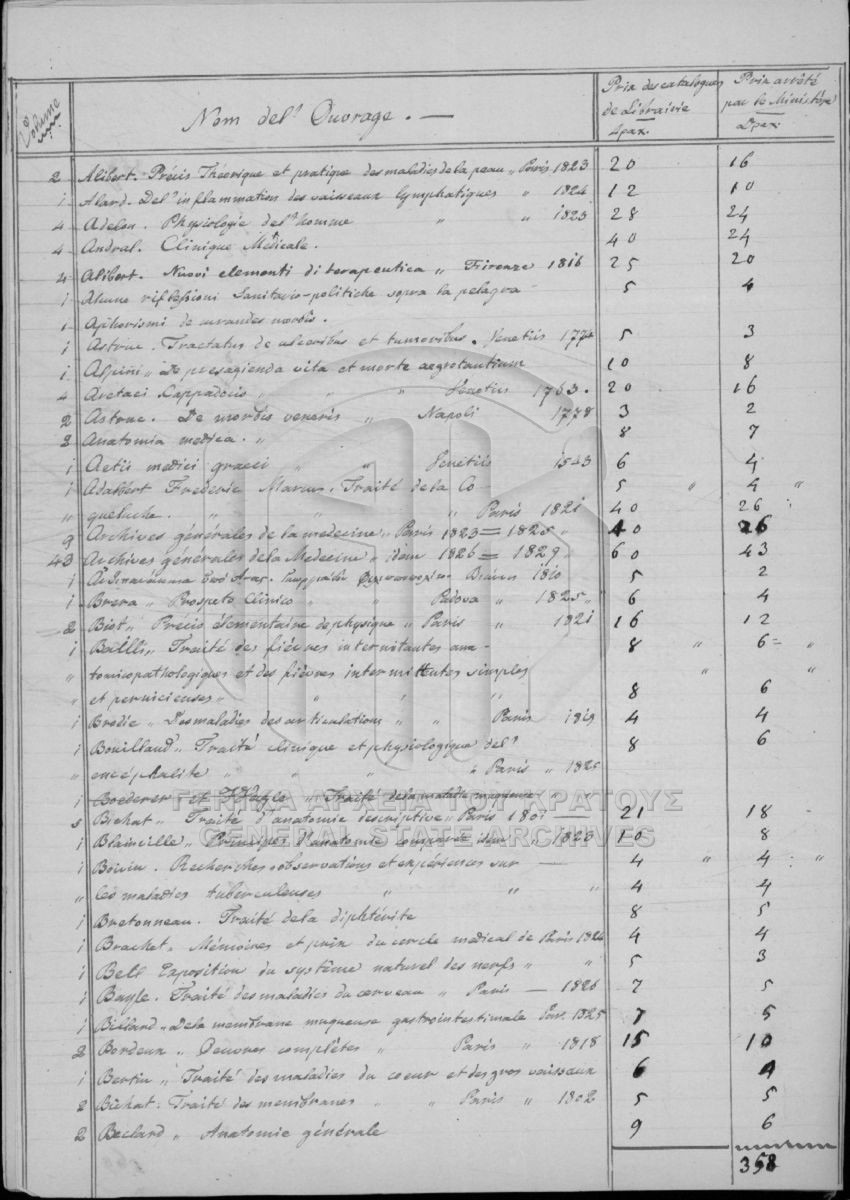 Volume Nom de l' Ouvrage. — Prix des catalogues de Librairie Δραχ. Prix arrêté par le Ministère Δραχ.
2 Alibert. Précis Théorique et pratique des maladies de la peau „ Paris 1823 20 16
1 Alard. De l'inflammation des vaisseaux lymphatiques „ 1824 12 10
4 Adelon. Physiologie de l'homme „ „ 1823 28 24
4 Andral. Clinique Médicale. 40 24
4 Alibert. Nuovi elementi di terapeutica „ Firenze 1816 25 20
1 Alcune riflessioni Sanitario-politiche sopra la pelagra 5 4
1 Aphorismi de curandes morbis.
1 Astruc. Tractatus de ulceribus et tumoribus. Venetiis 1774 5 3
1 Alpini „ De presagienda vita et morte aegrotantium 10 8
4 Aretaei Cappadocis „ „ „ Venetiis 1763. 20 16
2 Astruc. De morbis veneris „ Napoli 1778 3 2
2 Anatomia medica. „ 8 7
1 Aetii medici graeci „ „ Venetiis 1543 6 4
1 Adalbert Frederic Marcus. Traité de la Co- 5 „ 4 „
„ queluche. „ „ „ Paris 1821 40 26
9 Archives générales de la medecine „ Paris 1823 = 1825 „ 40 26
43 Archives générales de la Medecine „ idem 1826 = 1829 „ 60 43
1 Βιέννη 1810 5 2
1 Brera „ Prospeto Clinico „ „ Padova „ 1825 „ 6 4
2 Biot „ Precis élémentaire de physique „ Paris „ 1821 16 12
1 Bailli „ Traité des fièvres intermitantes ana- 8 „ 6 = „
„ tomicopathologiques et des fièvres intermittentes simples „ „
„ et pernicieuses „ „ „ „ 8 6
1 Brodie „ Des maladies des articulations „ „ Paris 1819 4 4
1 Bouillaud „ Traité clinique et physiologique de l' 8 6
„ encéphalite „ „ „ „ Paris „ 1825
1 Roederer et Wagle „ Traité de la maladie muqueuse „
5 Bichat „ Traité d'anatomie descriptive „ Paris 1801 — 21 18
1 Blainville „ Principes d'anatomie comparée idem 1823 10 8
1 Boivin. Recherches observations et expériences sur — 4 „ 4 „
„ les maladies tuberculeuses „ „ „ 4 4
1 Bretonneau. Traité de la diphtérite 8 5
1 Brachet. Mémoires et prix du cercle medical de Paris 1824 4 4
1 Bell Exposition du système naturel des nerfs „ „ 5 3
1 Bayle. Traité des maladies du cerveau „ Paris — 1826 7 5
1 Billard „ De la membrane muqueuse gastrointestimale Par. 1825 7 5
2 Bordeux „ Oeuvres complètes „ Paris „ 1818 15 10
1 Bertin „ Traité des maladies du coeur et des gros vaisseaux 6 4
2 Bichat: Traité des membranes „ „ Paris „ 1802 5 5
2 Beclard „ Anatomie générale 9 6
358
ΓΕΝΙΚΑ ΑΡΧΕΙΑ ΤΟΥ ΚΡΑΤΟΥΣ
GENERAL STATE ARCHIVES